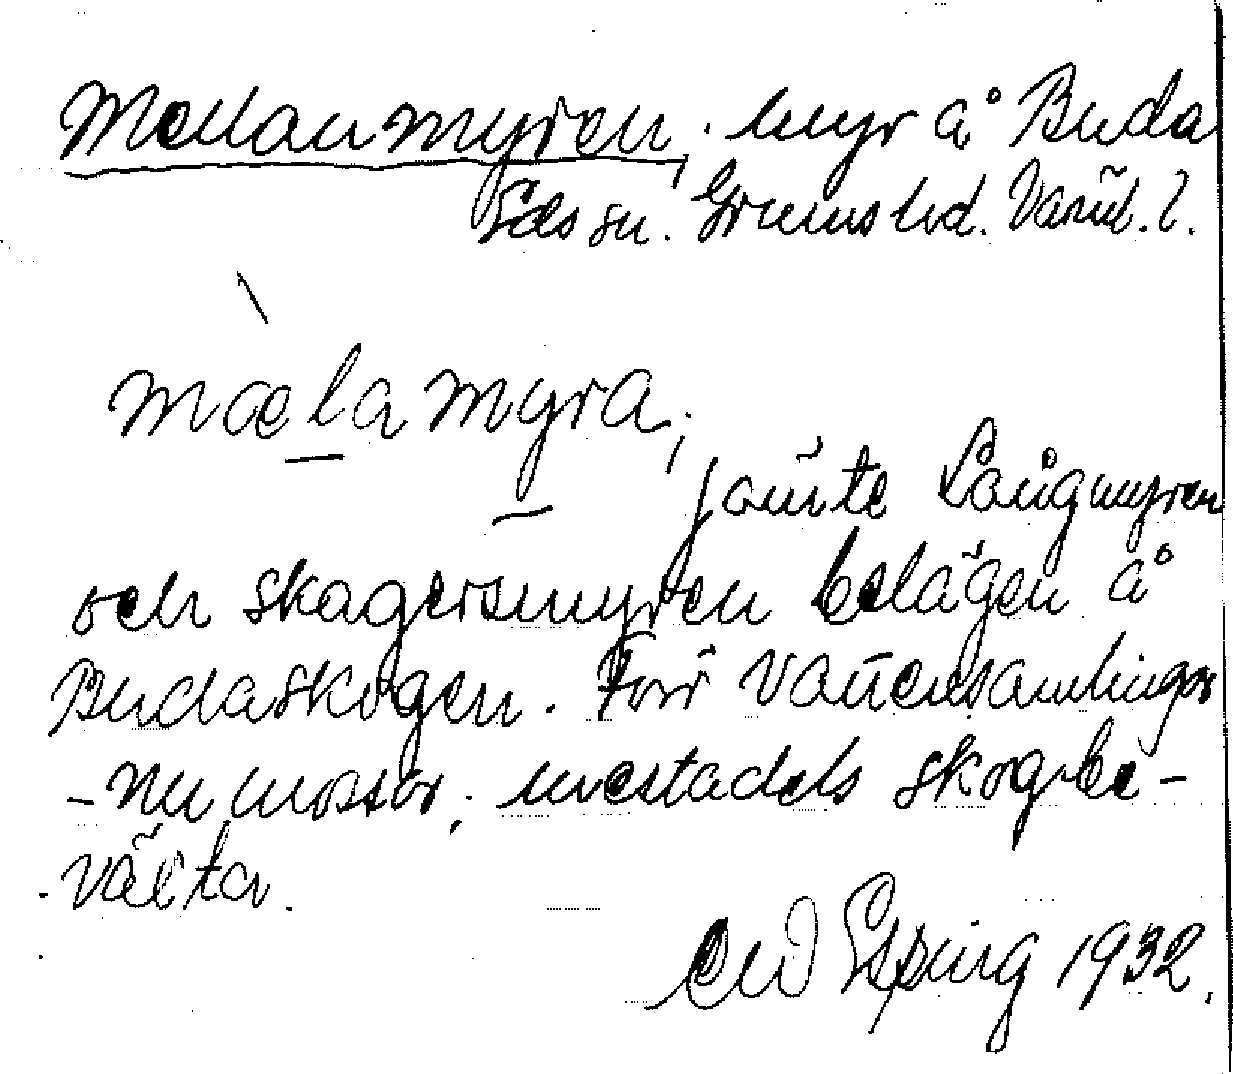 Mellanmyren, myr å Buda
Eds sn. Grums hd. Värml. l.
mælamyra,
jämte Långmyren
och Skagersmyren belägen å
Budaskogen. Förr vattensamlingar
- nu mossar, mestadels skogbe-
växta.
Espling 1932.